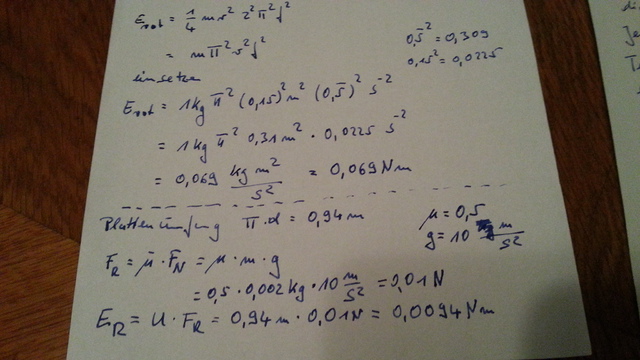 E_rot = 1/4 m r² 2² π² f²
= m π² r² f²
0,5̅² = 0,309
0,15² = 0,0225
einsetzen
E_rot = 1kg π² (0,15)² m² (0,5̅)² s⁻²
= 1kg π² 0,31 m² · 0,0225 s⁻²
= 0,069 kg m²/s² = 0,069 Nm
Plattenumfang π·d = 0,94m
μ = 0,5
g = 10 m/s²
F_R = μ · F_N = μ · m · g
= 0,5 · 0,002kg · 10 m/s² = 0,01N
E_R = U · F_R = 0,94m · 0,01N = 0,0094Nm